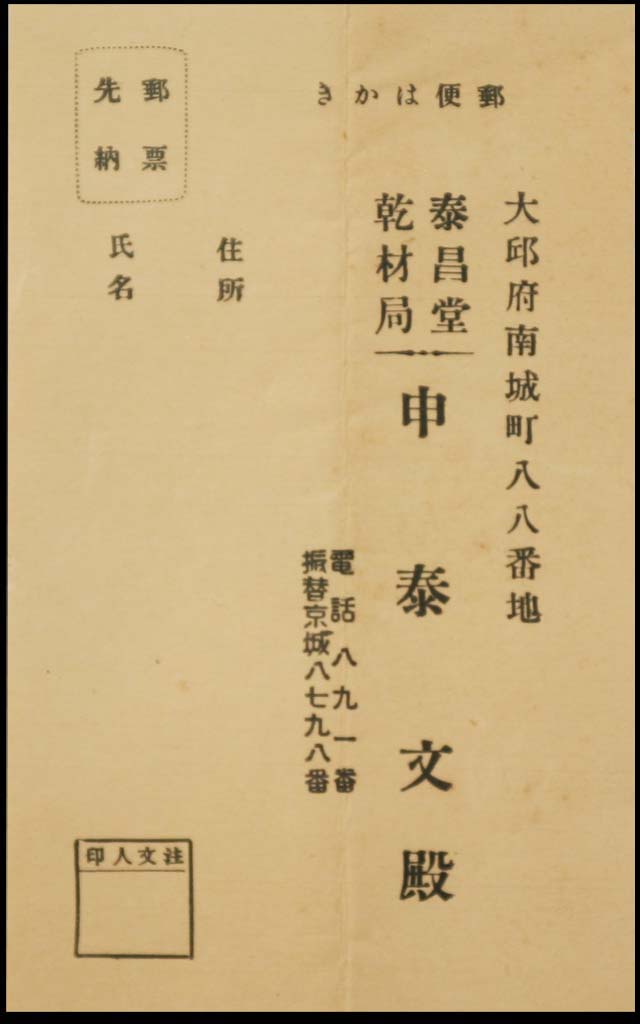 郵便はかき
大邱府南城町八八番地
泰昌堂
乾材局
申泰文殿
電話八九一番
振替京城八七九八番
住所
氏名
郵票
先納
注文人印